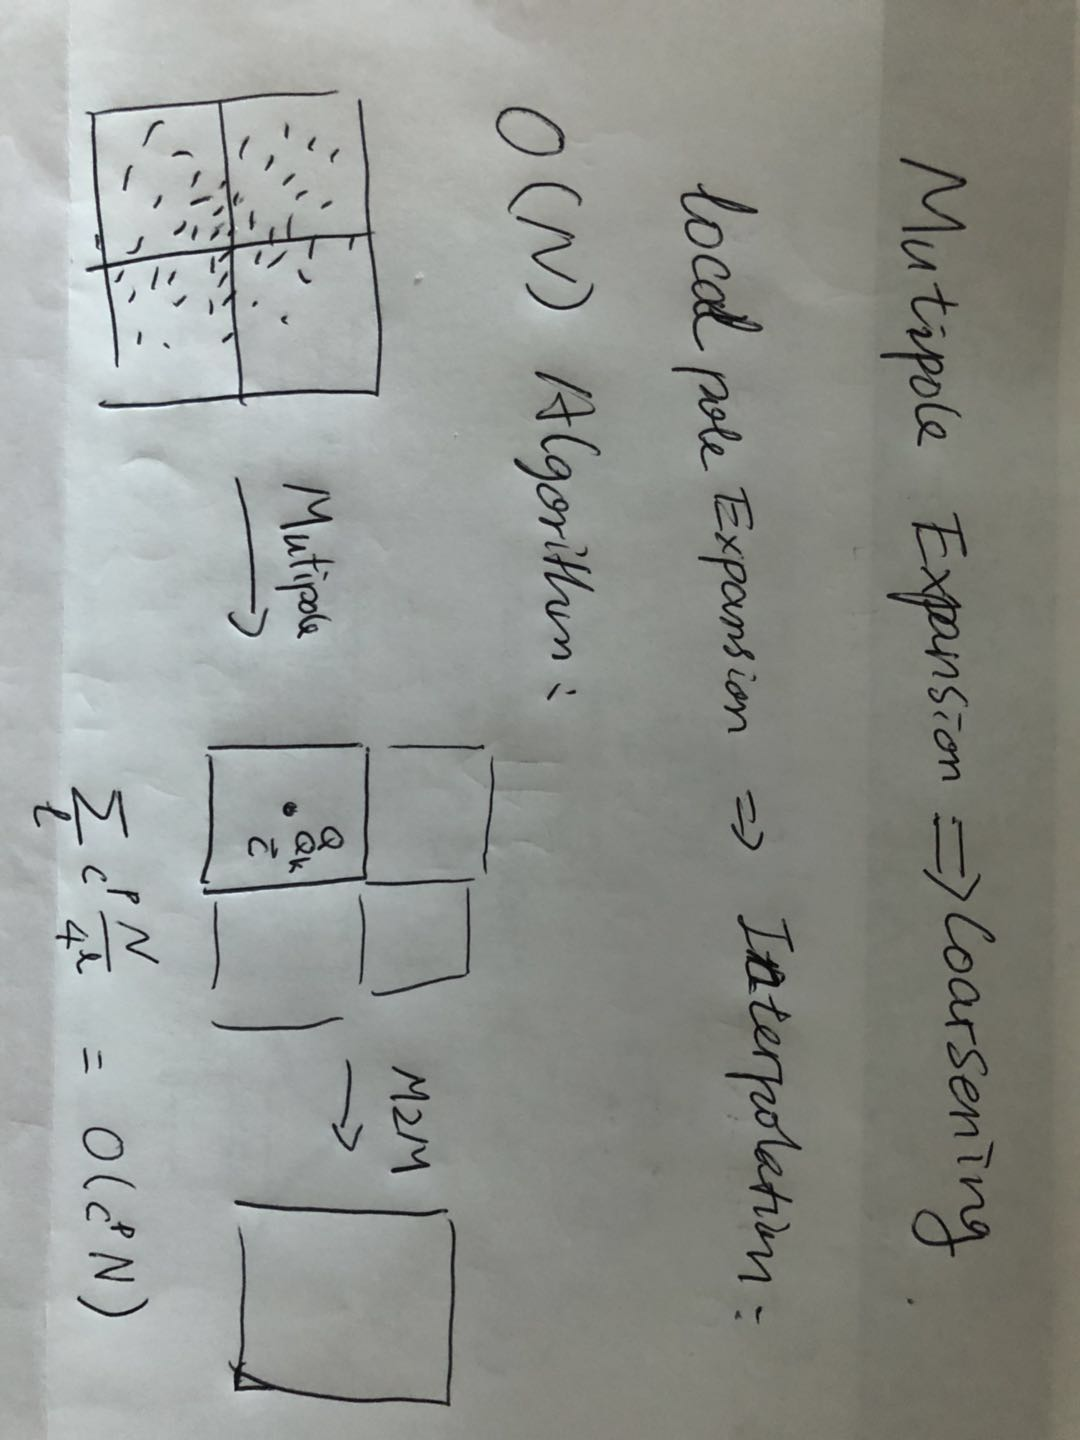 Mutipole Expansion => Coarsening.
local pole Expansion => Interpolation:
O(N) Algorithm:
Mutipole
M2M
Q
Qk
c̄
∑_l c^p N/4^l = O(c^p N)